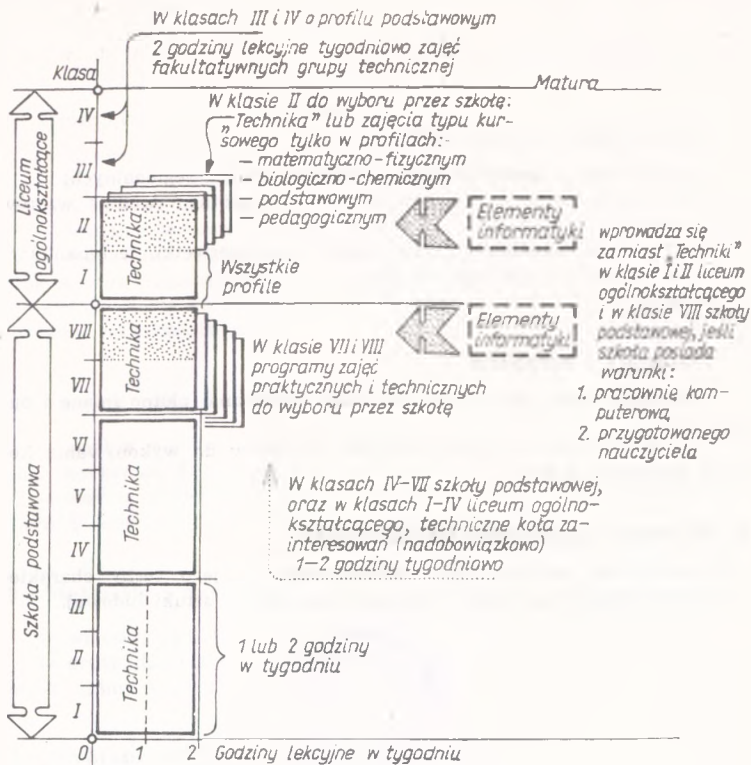 W klasach III i IV o profilu podstawowym
2 godziny lekcyjne tygodniowo zajęć
fakultatywnych grupy technicznej
Klasa
Matura
W klasie II do wyboru przez szkołę:
„Technika” lub zajęcia typu kur-
sowego tylko w profilach:
— matematyczno-fizycznym
— biologiczno-chemicznym
— podstawowym
— pedagogicznym
liceum
ogólnokształcące
IV
III
II
I
Technika
Wszystkie
profile
Elementy
informatyki
Elementy
informatyki
wprowadza się
zamiast „Techniki”
w klasie I i II liceum
ogólnokształcącego
i w klasie VIII szkoły
podstawowej, jeśli
szkoła posiada
warunki:
1. pracownię kom-
puterową,
2. przygotowanego
nauczyciela
Szkoła podstawowa
VIII
VII
VI
V
IV
III
II
I
Technika
W klasie VII i VIII
programy zajęć
praktycznych i technicznych
do wyboru przez szkołę
Technika
W klasach IV–VII szkoły podstawowej,
oraz w klasach I–IV liceum ogólno-
kształcącego, techniczne koła za-
interesowań (nadobowiązkowo)
1–2 godziny tygodniowo
Technika
1 lub 2 godziny
w tygodniu
0 1 2 Godziny lekcyjne w tygodniu